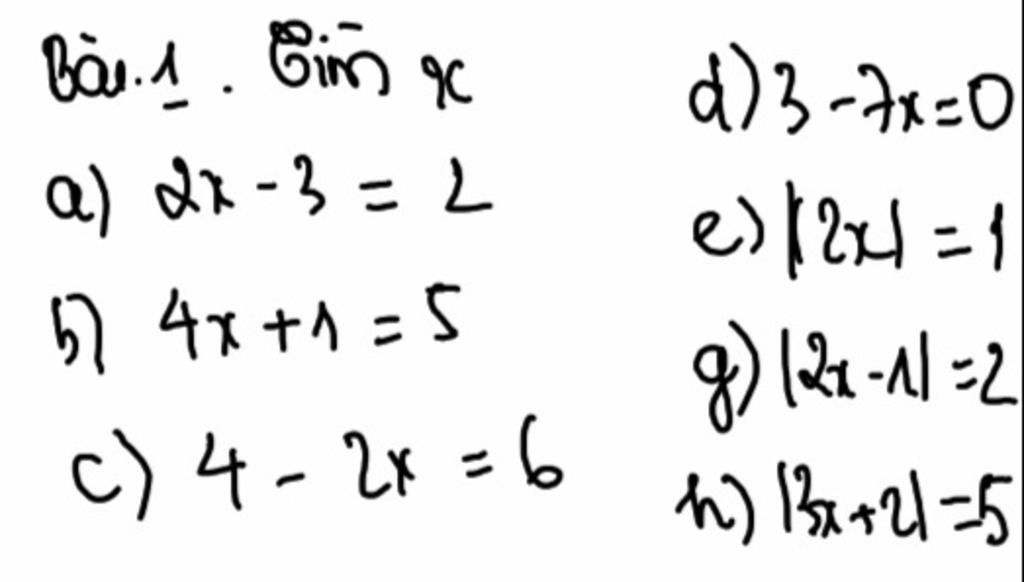 Bài.1. Tìm x
a) 2x - 3 = 2
b) 4x + 1 = 5
c) 4 - 2x = 6
d) 3 - 7x = 0
e) |2x| = 1
g) |2x - 1| = 2
h) |3x + 2| = 5